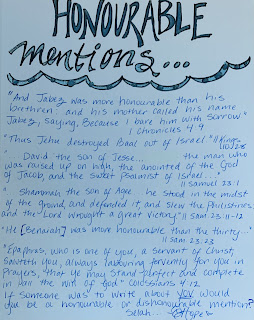 HONOURABLE
mentions...
"And Jabez was more honourable than his
brethren: and his mother called his name
Jabez, saying, Because I bare him with Sorrow"
1 Chronicles 4 9
"Thus Jehu destroyed Baal out of Israel." II Kings
10/28
"David the son of Jesse... the man who
was raised up on high, the anointed of the God
of Jacob, and the sweet psalmist of Israel..."
II Samuel 23 1
"Shammah the son of Agee. he stood in the midst
of the ground, and defended it, and slew the Philistines
and the Lord wrought a great victory" II Sam 23 11-12
"He [Benaiah] was more honourable than the thirty..."
II Sam 23 23
"Epaphras, who is one of you, a servant of Christ,
saluteth you, always labouring fervently for you in
prayers, that ye may stand perfect and complete
in all the will of God" Colossians 4 12
If someone was to write about YOU would
you be a honourable or dishonourable mention?
Selah...